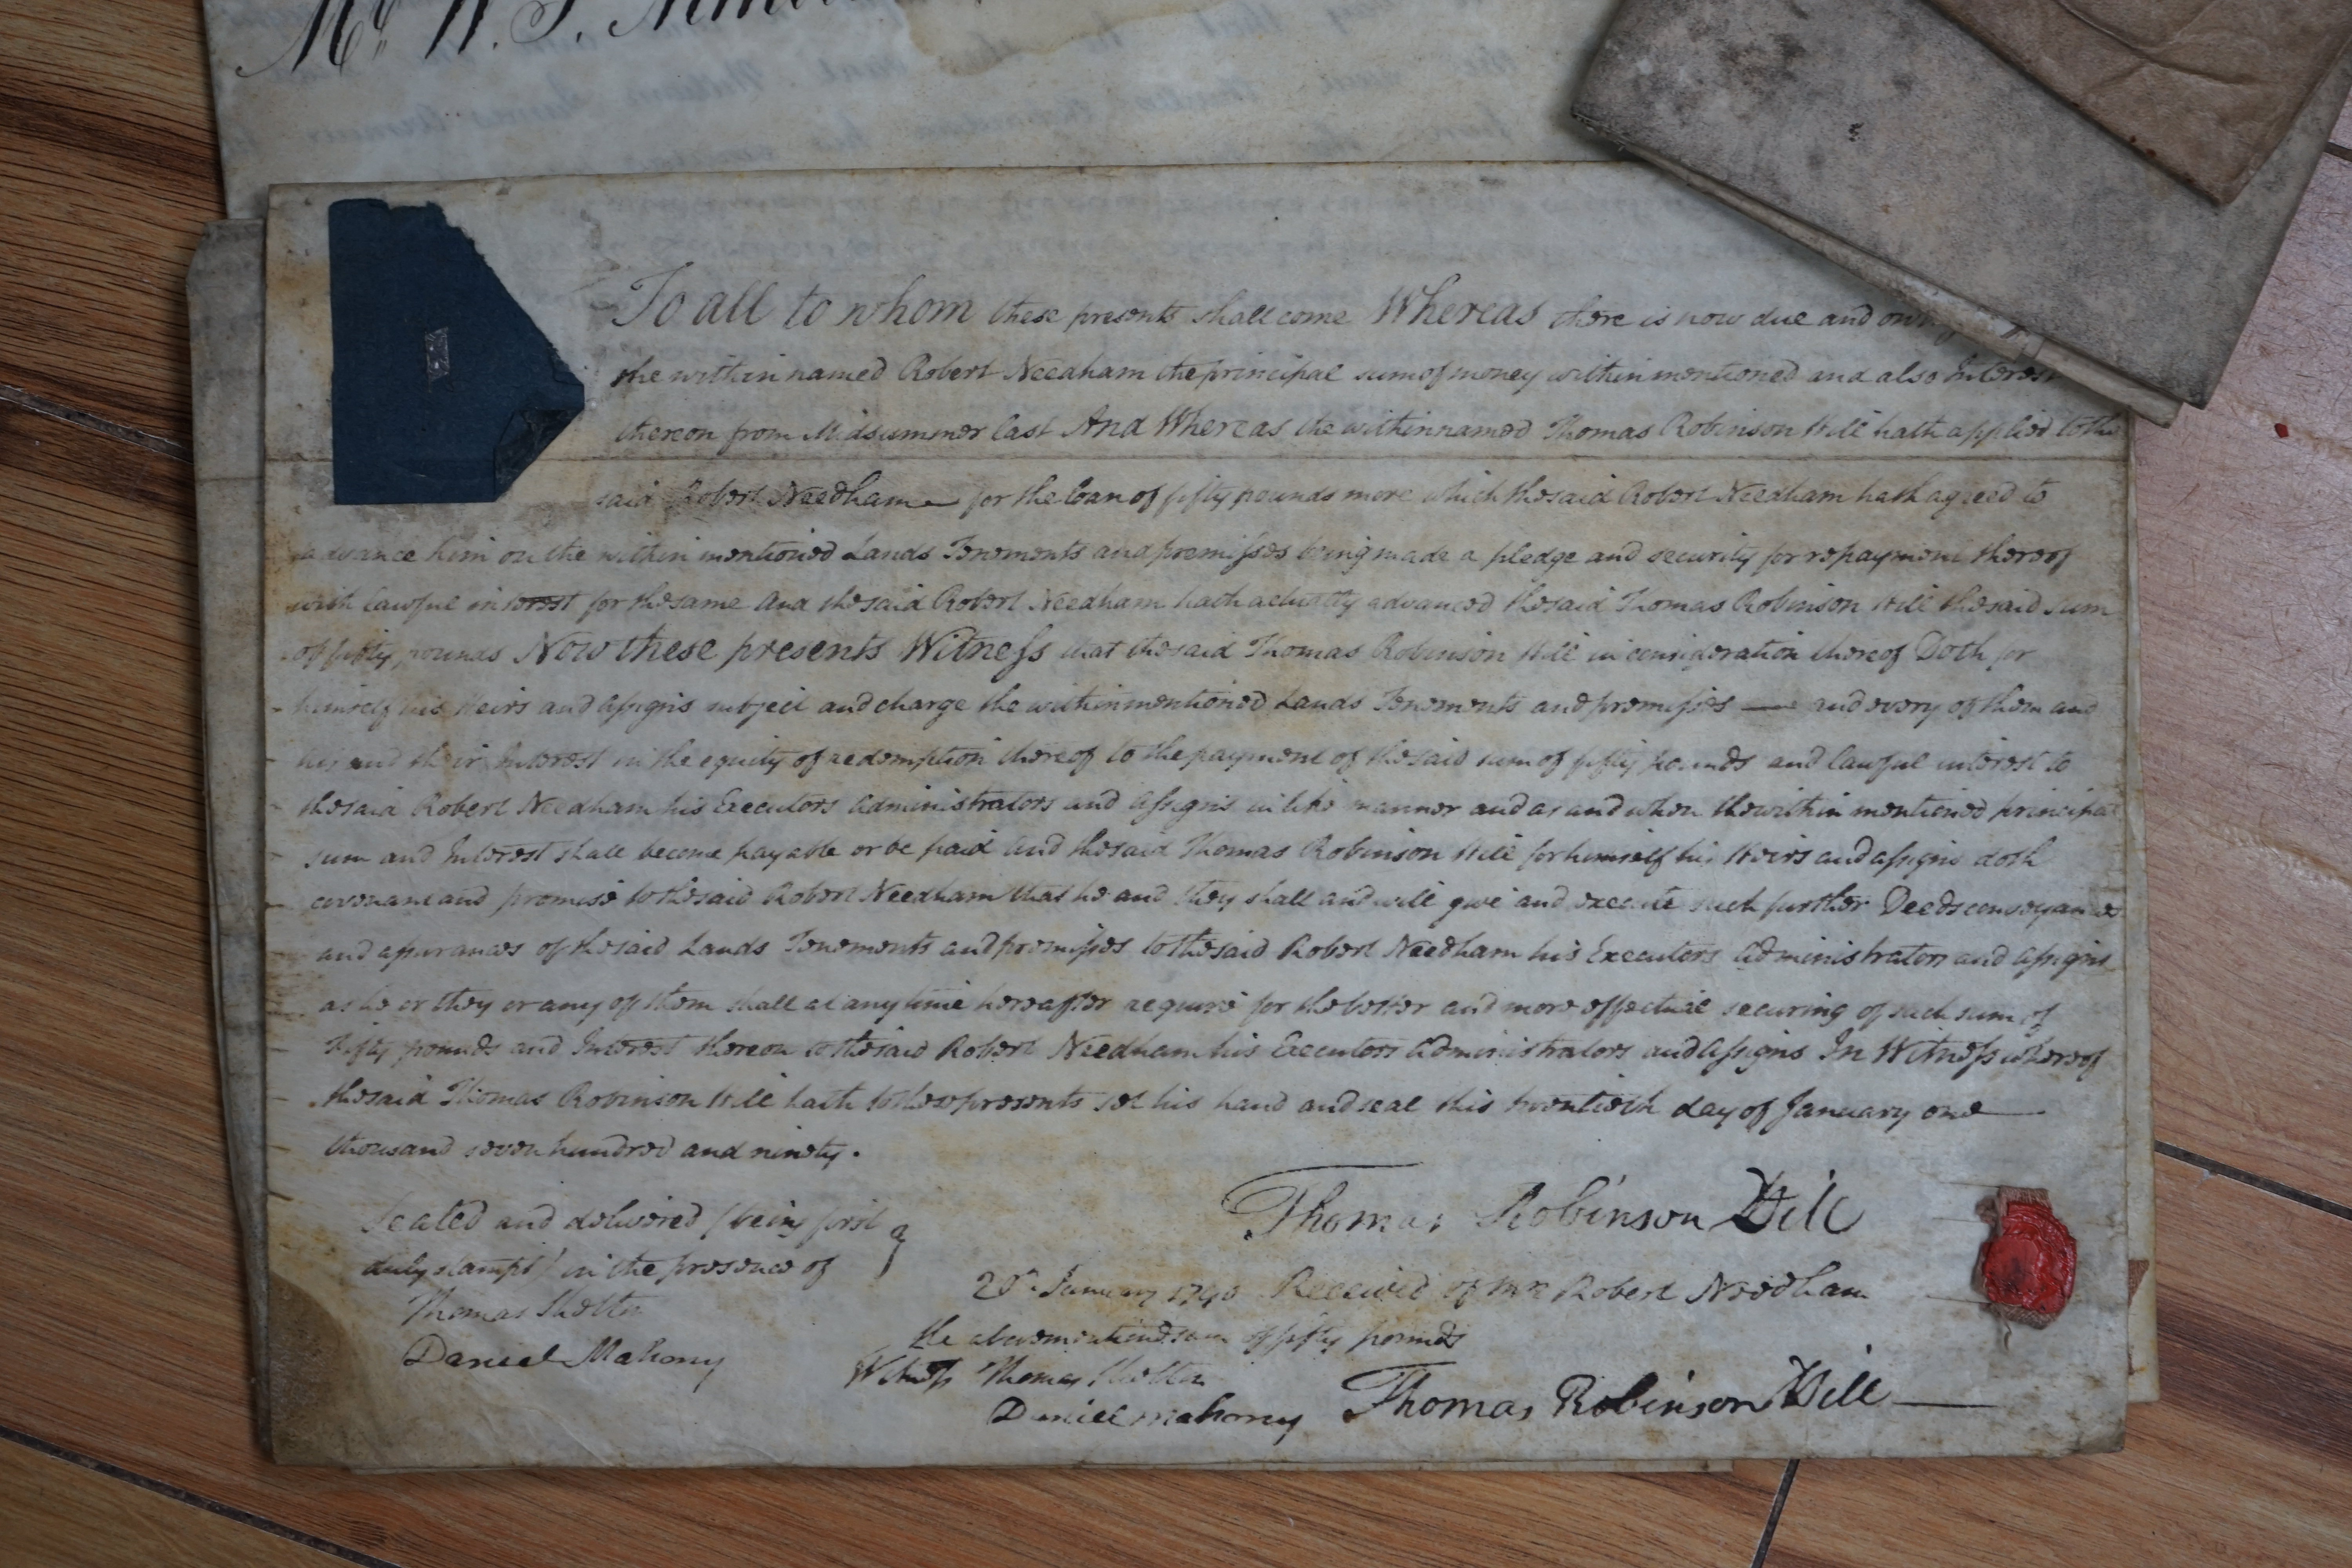 Mr. W. J.
To all to whom these presents shall come Whereas there is now due and
the within named Robert Needham the principal sum of money within mentioned and also Interest
thereon from Midsummer last And Whereas the within named Thomas Robinson Hill hath applied to the
said Robert Needham for the loan of fifty pounds more which the said Robert Needham hath agreed to
advance him on the within mentioned Lands Tenements and premisses being made a pledge and security for repayment thereof
with lawful interest for the same And the said Robert Needham hath actually advanced the said Thomas Robinson Hill the said sum
of fifty pounds Now these presents Witness that the said Thomas Robinson Hill in consideration thereof Doth for
himself his Heirs and Assigns subject and charge the within mentioned Lands Tenements and premisses — and every of them and
his and their Interest in the equity of redemption thereof to the payment of the said sum of fifty pounds and lawful interest to
the said Robert Needham his Executors Administrators and Assigns in like manner and as and when the within mentioned principal
sum and Interest shall become payable or be paid And the said Thomas Robinson Hill for himself his Heirs and assigns doth
covenant and promise to the said Robert Needham that he and they shall and will give and execute such further Deeds conveyances
and assurances of the said Lands Tenements and premisses to the said Robert Needham his Executors Administrators and Assigns
as he or they or any of them shall at any time hereafter require for the better and more effectual securing of such sum of
Fifty pounds and Interest thereon to the said Robert Needham his Executors Administrators and Assigns In Witness whereof
the said Thomas Robinson Hill hath to these presents set his hand and seal this twentieth day of January one
thousand seven hundred and ninety.
Sealed and delivered (being first
duly stampt) in the presence of
Thomas
Daniel Mahony
Thomas Robinson Hill
20th January 1790 Received of Mr Robert Needham
the abovementioned sum of fifty pounds
Witness Thomas
Daniel Mahony
Thomas Robinson Hill